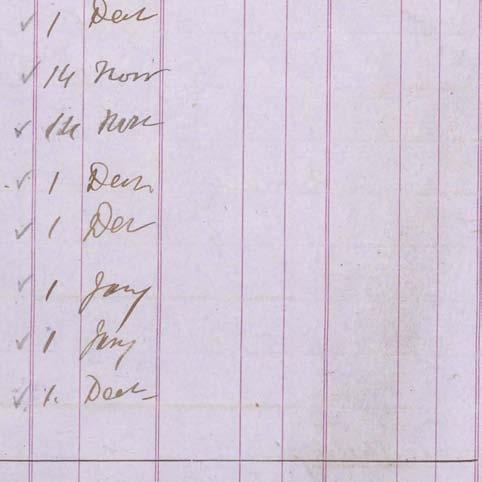 ✓ 1 Decr
✓ 14 Novr
✓ 14 Novr
✓ 1 Decr
✓ 1 Decr
✓ 1 Jany
✓ 1 Jany
✓ 1. Decr